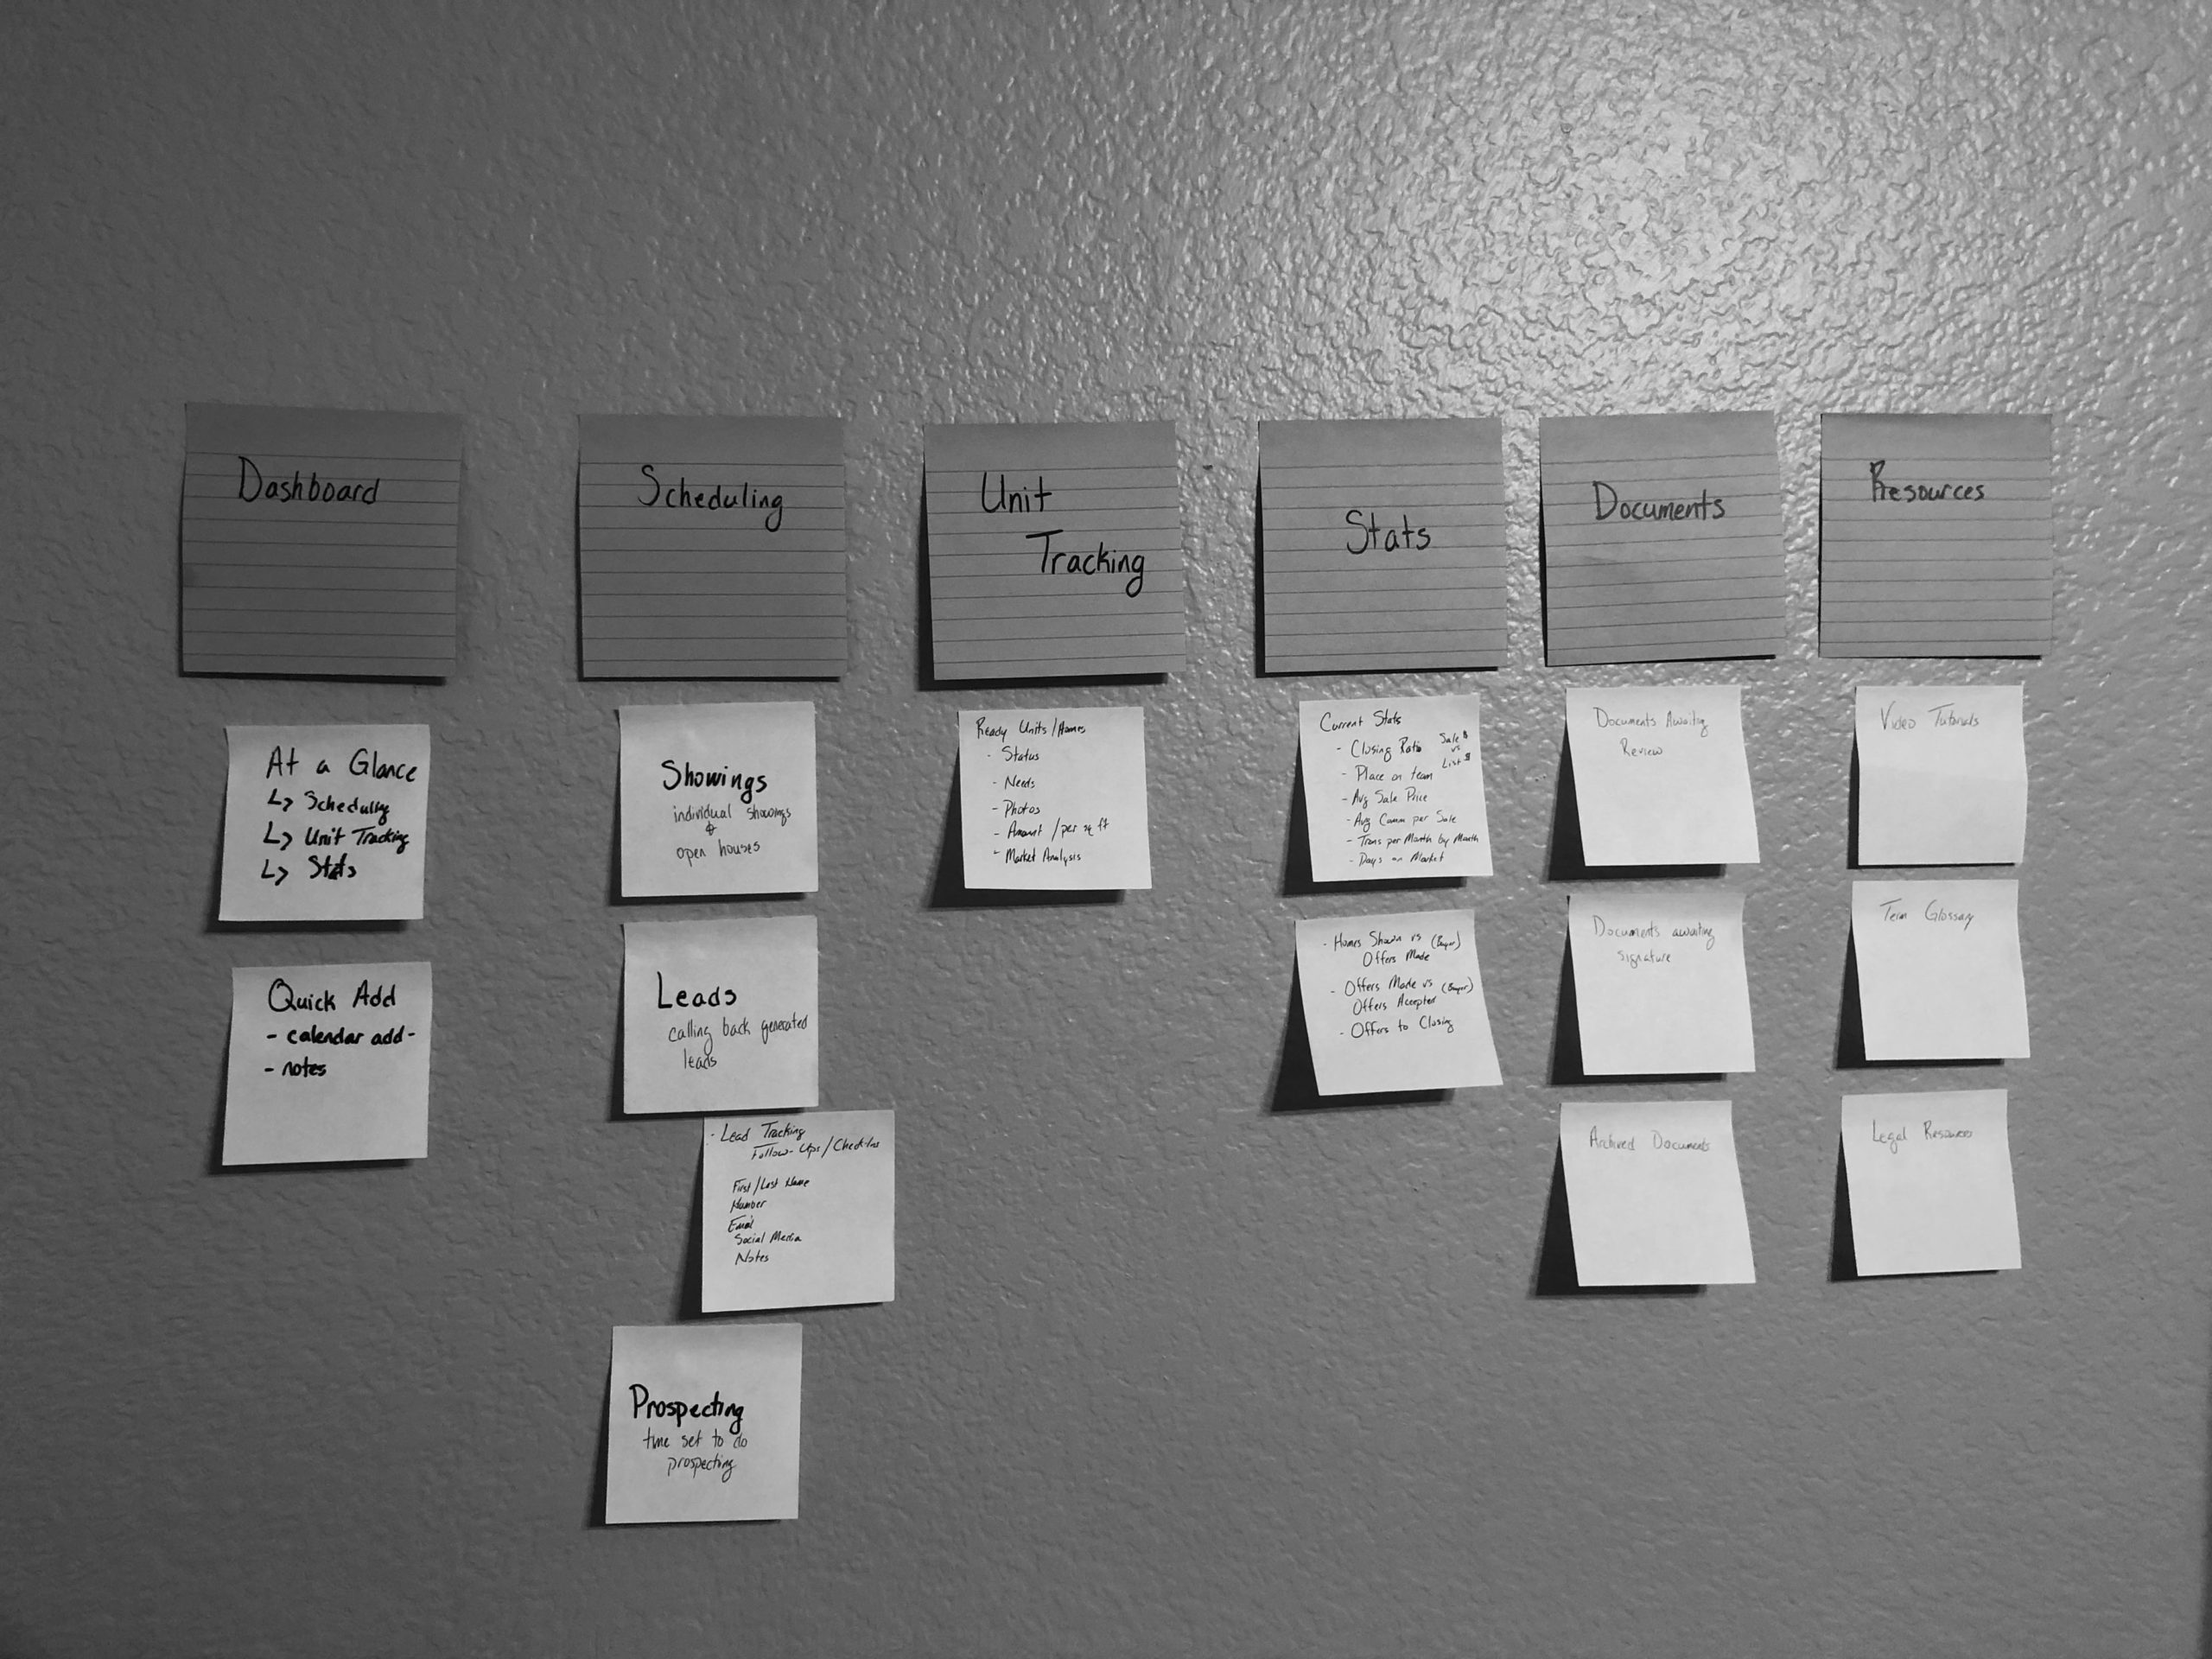 Dashboard
At a Glance
↳ Scheduling
↳ Unit Tracking
↳ Stats
Quick Add
- calendar add -
- notes
Scheduling
Showings
individual showings
&
open houses
Leads
calling back generated
leads
- Lead Tracking
Follow-Ups/Check-Ins
First/Last Name
Number
Email
Social Media
Notes
Prospecting
time set to do
prospecting
Unit
Tracking
Ready Units/Homes
- Status
- Needs
- Photos
- Amount / per sq ft
- Market Analysis
Stats
Current Stats
- Closing Ratio Sale $
vs
List $
- Place on team
- Avg Sale Price
- Avg Comm per Sale
- Trans per Month by Month
- Days on Market
- Homes Shown vs (Buyer)
Offers Made
- Offers Made vs (Buyer)
Offers Accepted
- Offers to Closing
Documents
Documents Awaiting
Review
Documents awaiting
signature
Archived Documents
Resources
Video Tutorials
Term Glossary
Legal Resources